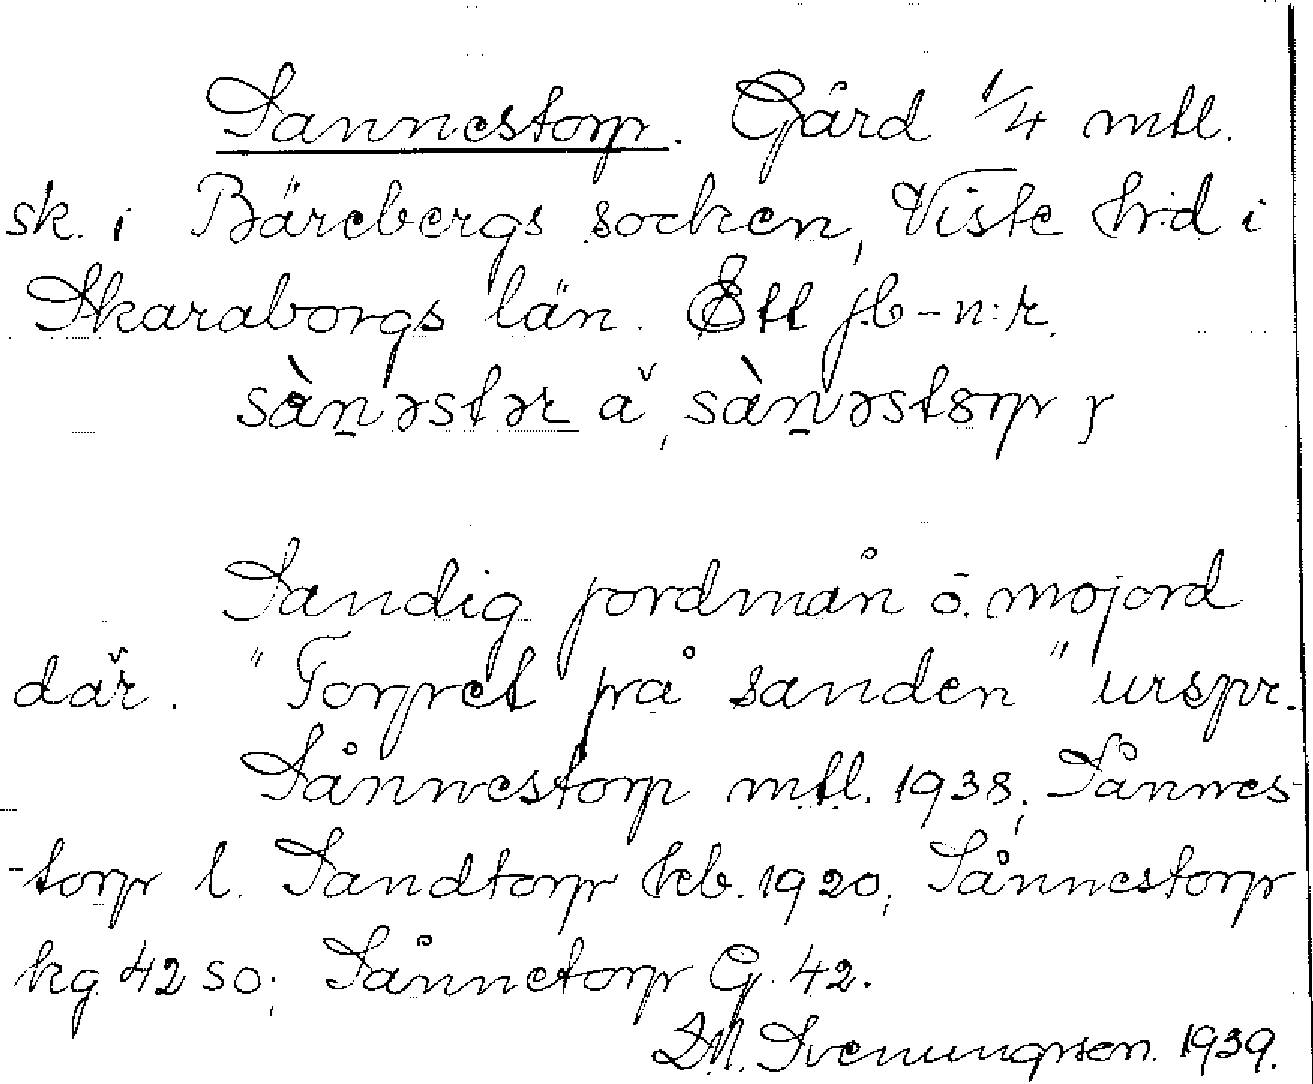 Sannestorp. Gård 1/4 mtl.
sk. i Bärebergs socken, Viste hd i
Skaraborgs län. Ett jb-n:r.
sàn̠əstər ǎ, sàn̠əstɷrp r
Sandig jordmån o. mojord
där. "Torpet på sanden" urspr.
Sånnestorp mtl. 1938; Sånnes-
-torp l. Sandtorp kb. 1920; Sånnestorp
kg 42 SO; Sånnetorp G. 42.
Svenungsson. 1939.